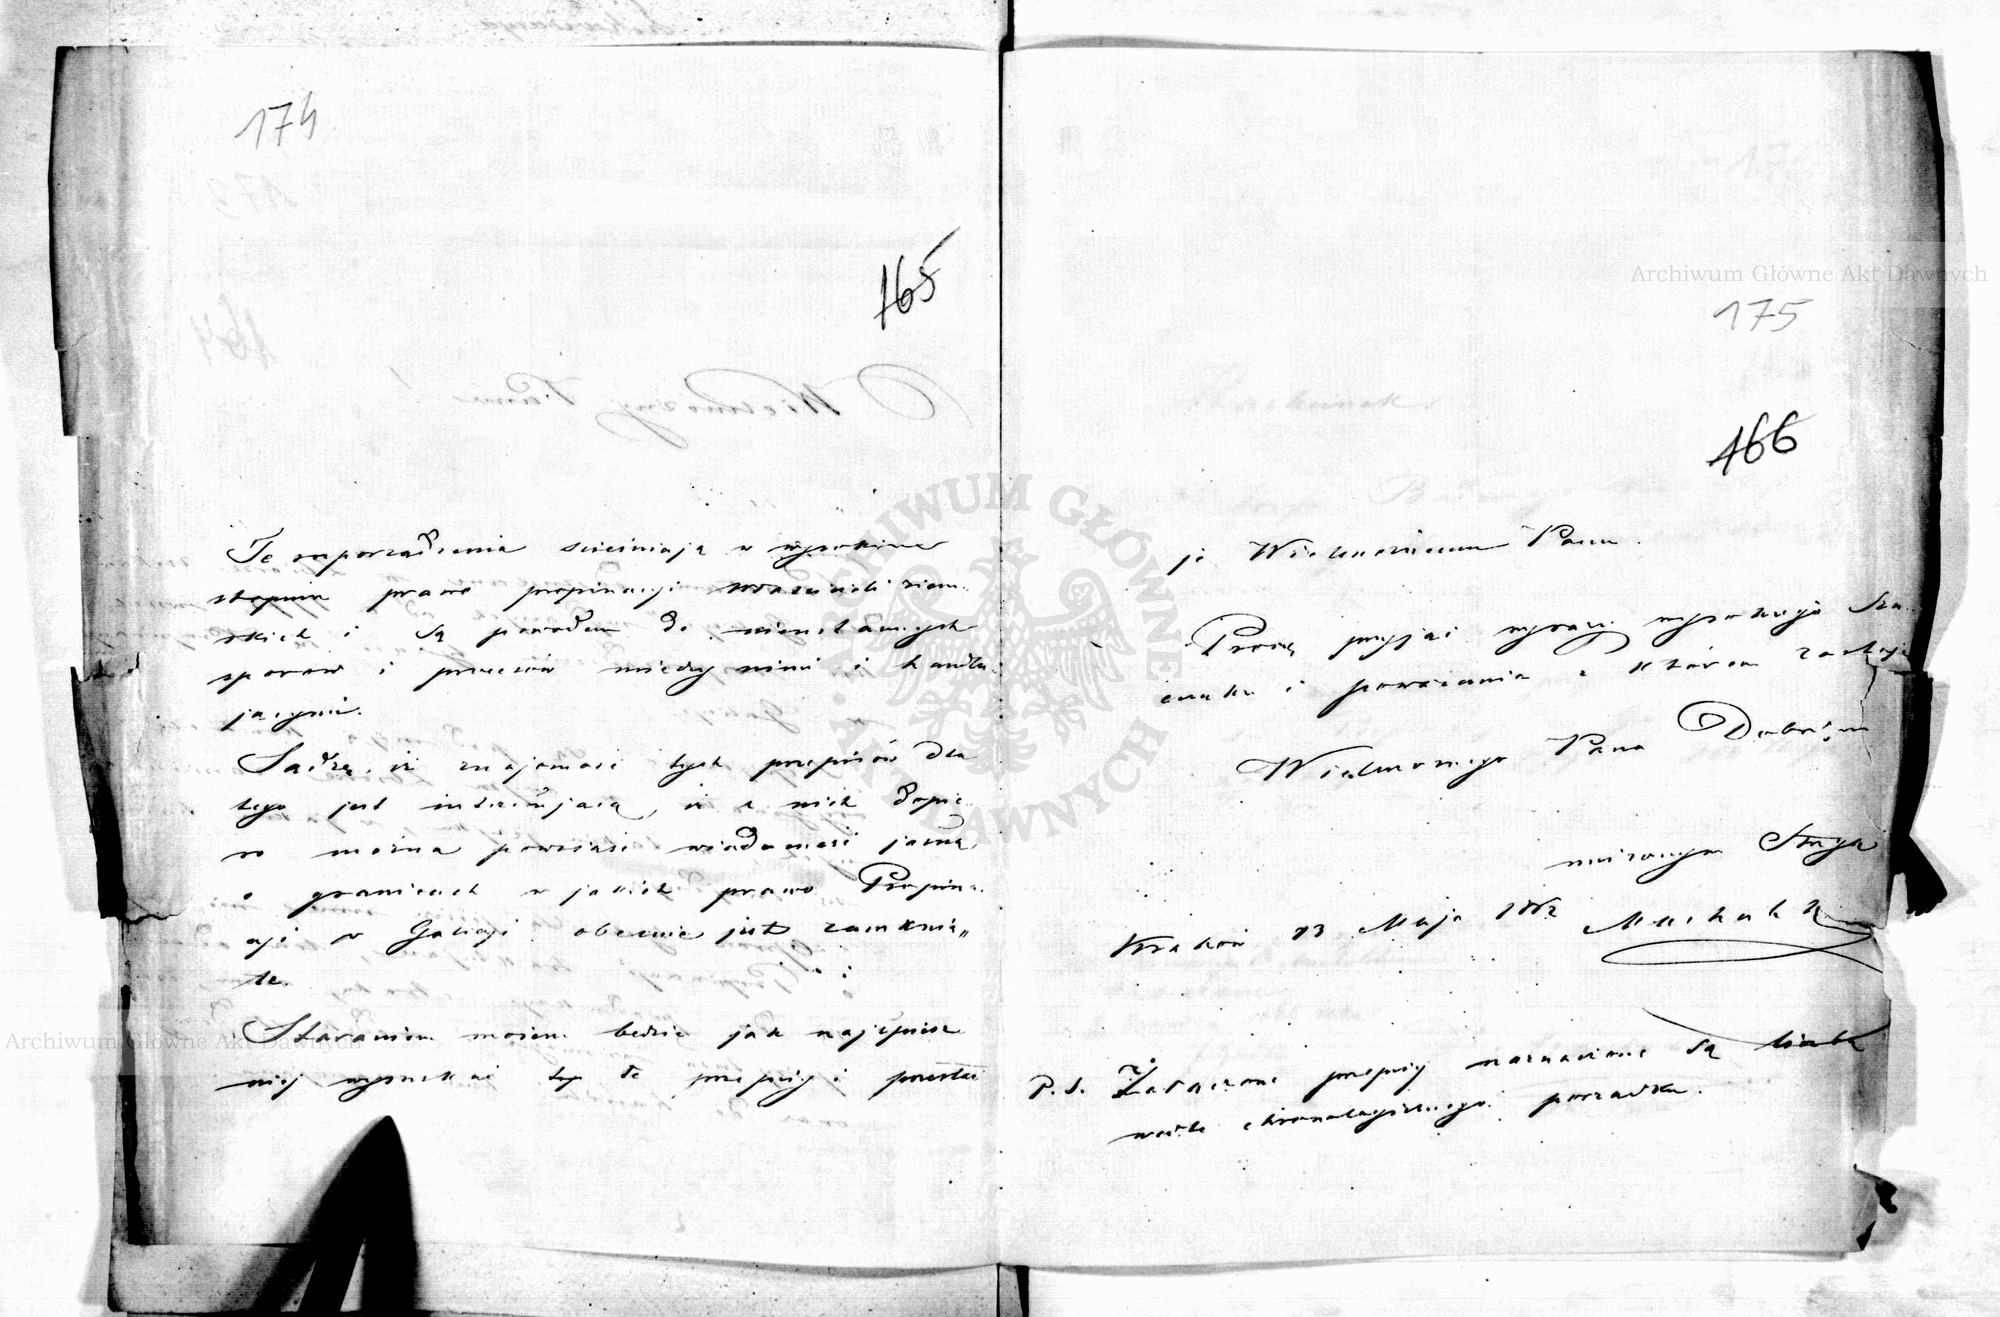 174
165
Te rozporządzenia ścieśniają w wysokim
stopniu prawo propinacji właścicieli ziem-
skich i są powodem do nieustannych
sporów i procesów między nimi i handlu-
jącymi.
Sądzę, iż znajomość tych przepisów dla
tego jest interesującą, iż z nich dopie-
ro można powziąść wiadomość jasną
o granicach w jakich prawo Propina-
cji w Galicji obecnie jest zamknię-
te.
Staraniem mojem będzie jak najspiesz-
niej wyszukać te przepisy i przesłać
175
166
je Wielmożnemu Panu.
Proszę przyjąć wyrazy wysokiego Sza-
cunku i poważania z którem zostaję
Wielmożnego Pana Dobrodz.
uniżonym Sługą
Kraków 23 Maja 1862
P.S. Załączone przepisy naznaczone są liczbą
wedle chronologicznego porządku.
Archiwum Główne Akt Dawnych
Archiwum Główne Akt Dawnych
ARCHIWUM GŁÓWNE AKT DAWNYCH